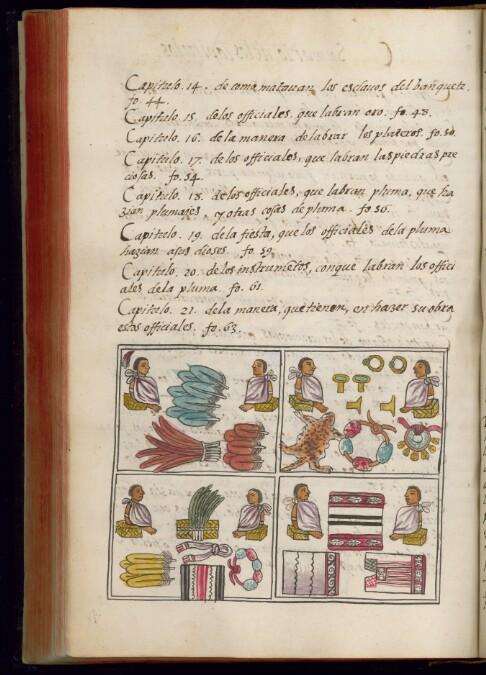 Capitulo. 14. de como matauan los esclauos del banquete.
fo. 44.
Capitulo. 15. de los officiales, que labran oro. fo. 48.
Capitulo. 16. de la manera de labrar los plateros. fo. 50.
Capitulo. 17. de los officiales, que labran las piedras pre
ciosas. fo. 54.
Capitulo. 18. de los officiales, que labran pluma, que ha
zian plumajes, y otras cosas de pluma. fo. 56.
Capitulo. 19. de la fiesta, que los officiales de la pluma
hazian a sus dioses. fo. 59.
Capitulo. 20. de los instrumētos, con que labran los offici
ales de la pluma. fo. 61.
Capitulo. 21. de la manera, que tienen, en hazer su obra
estos officiales. fo. 63.